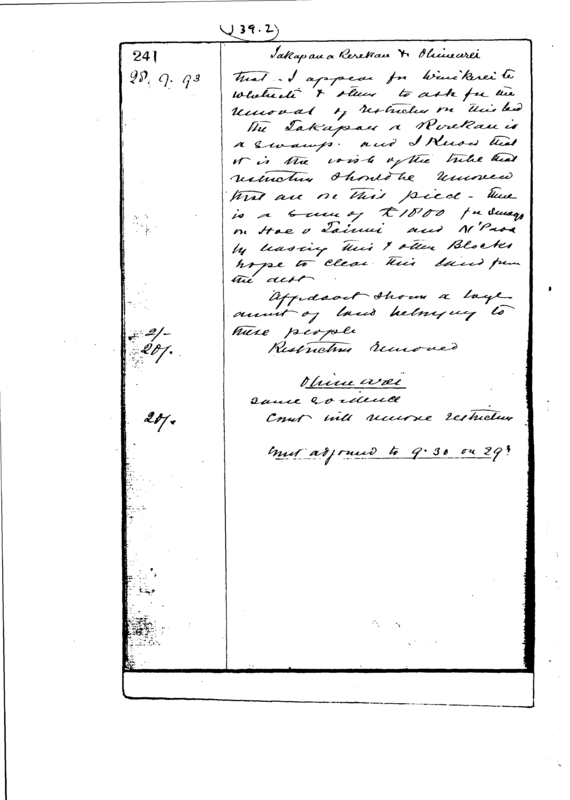 (39.2)
241 Takapau a Rerekau & Ohinewai
28. 9. 93 that - I appear for
& others to ask for the
removal of restriction on this land
The Takapau a Rerekau is
a swamp. and I know that
it is the wish of the tribe that
restriction should be removed
that are on this piece - there
is a sum of £1800 for Survey
on Hoe o Tainui and N'Paoa
by leasing this & other Blocks
hope to clear this land from
the debt
Affidavit shows a large
amount of land belonging to
2/- these people
20/. Restriction removed
Ohinewai
same evidence
20/. Court will remove restriction
Court adjourned to 9.30 on 29th